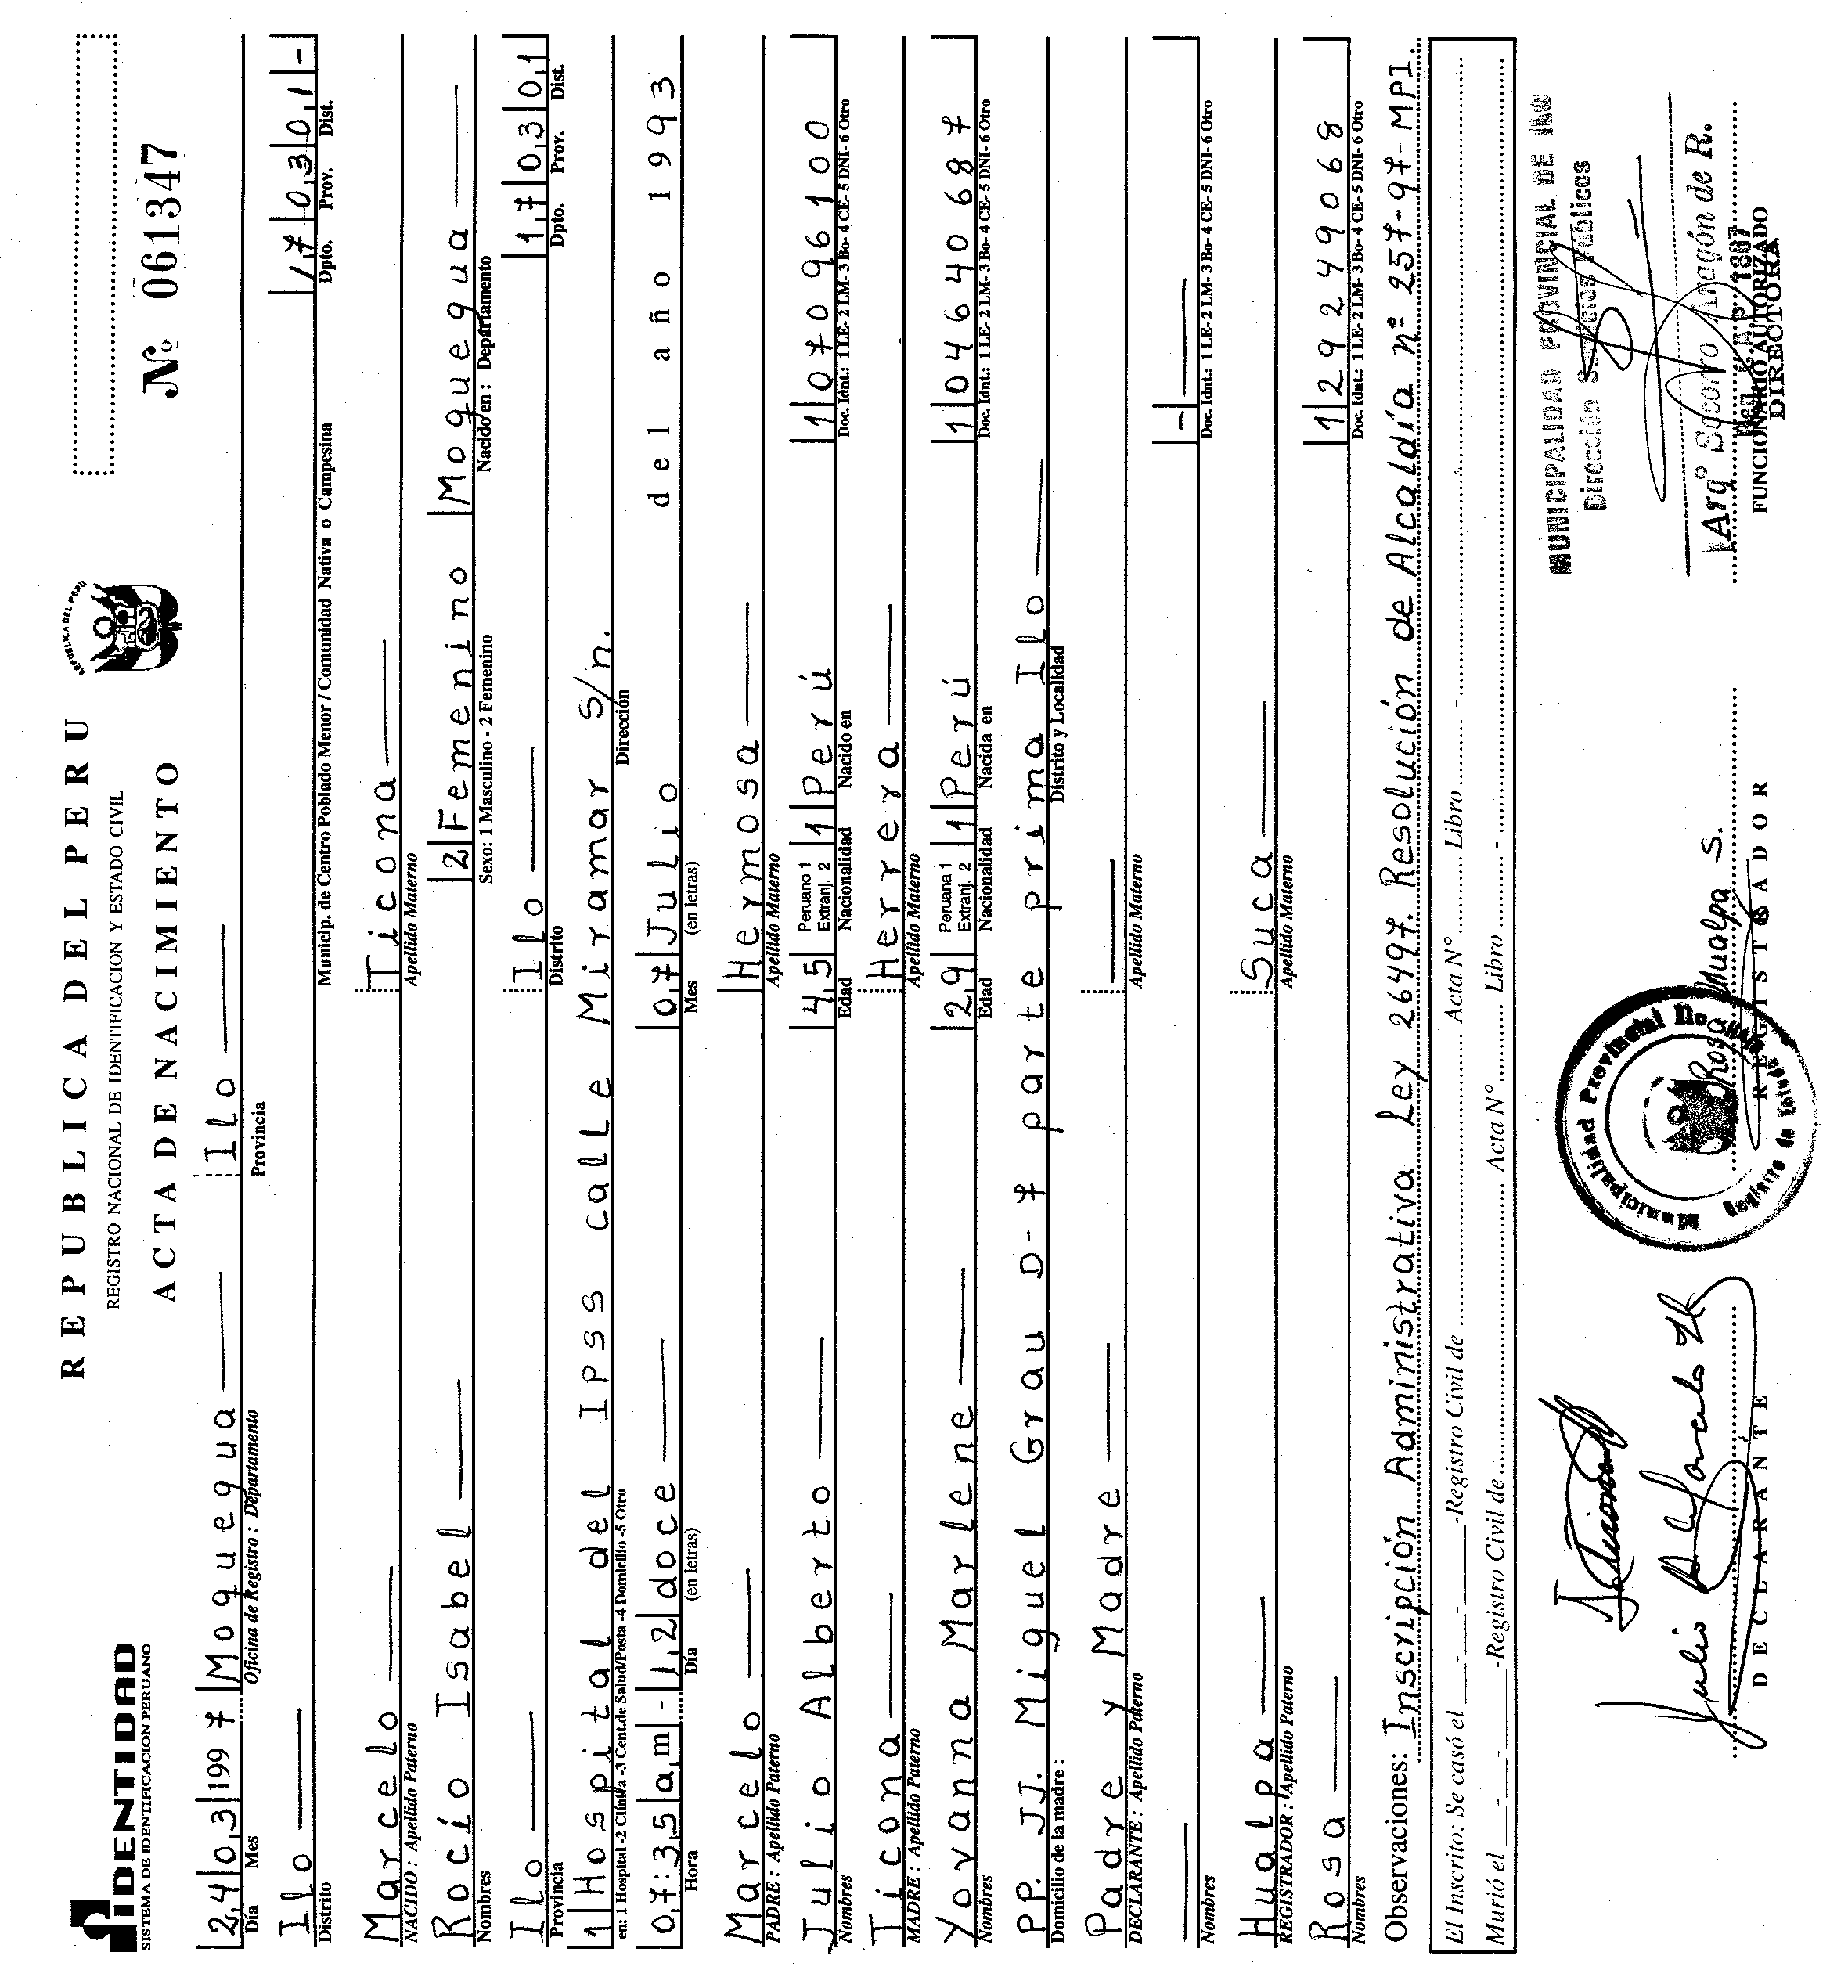 IDENTIDAD
SISTEMA DE IDENTIFICACION PERUANO
REPUBLICA DEL PERU
REGISTRO NACIONAL DE IDENTIFICACION Y ESTADO CIVIL
ACTA DE NACIMIENTO
REPUBLICA DEL PERU
Nº 061347
24 03 1997 Moquegua Ilo
Día Mes Oficina de Registro : Departamento Provincia
Ilo 17 03 01 -
Distrito Municip. de Centro Poblado Menor / Comunidad Nativa o Campesina Dpto. Prov. Dist.
Marcelo Ticona
NACIDO : Apellido Paterno Apellido Materno
Rocío Isabel 2 Femenino Moquegua
Nombres Sexo: 1 Masculino - 2 Femenino Nacido en : Departamento
Ilo Ilo 17 03 01
Provincia Distrito Dpto. Prov. Dist.
1 Hospital del Ipss calle Miramar s/n.
en: 1 Hospital -2 Clínika -3 Cent.de Salud/Posta -4 Domicilio -5 Otro Dirección
07:35 a,m - 12 doce 07 Julio del año 1993
Hora Día (en letras) Mes (en letras)
Marcelo Hermosa
PADRE : Apellido Paterno Apellido Materno
Julio Alberto 45 Peruano 1 Extranj. 2 1 Perú 1 07096100
Nombres Edad Nacionalidad Nacido en Doc. Idnt.: 1 LE- 2 LM- 3 Bo- 4 CE- 5 DNI- 6 Otro
Ticona Herrera
MADRE : Apellido Paterno Apellido Materno
Yovanna Marlene 29 Peruana 1 Extranj. 2 1 Perú 1 04640687
Nombres Edad Nacionalidad Nacida en Doc. Idnt.: 1 LE- 2 LM- 3 Bo- 4 CE- 5 DNI- 6 Otro
PP. JJ. Miguel Grau D-7 parte prima Ilo
Domicilio de la madre : Distrito y Localidad
Padre y Madre
DECLARANTE : Apellido Paterno Apellido Materno
-
Nombres Doc. Idnt.: 1 LE- 2 LM- 3 Bo- 4 CE- 5 DNI- 6 Otro
Hualpa Suca
REGISTRADOR : Apellido Paterno Apellido Materno
Rosa 1 29249068
Nombres Doc. Idnt.: 1 LE- 2 LM- 3 Bo- 4 CE- 5 DNI- 6 Otro
Observaciones: Inscripción Administrativa Ley 26497. Resolución de Alcaldía nº 257-97-MPI.
El Inscrito: Se casó el - - -Registro Civil de Acta Nº Libro -
Murió el - - -Registro Civil de Acta Nº Libro -
MUNICIPALIDAD PROVINCIAL DE ILO
Dirección Servicios Publicos
Municipalidad Provincial Ilo
Registro de Estado
Rosa Hualpa S.
Arqº Socorro Aragón de R.
DECLARANTE REGISTRADOR FUNCIONARIO AUTORIZADO
DIRECTORA